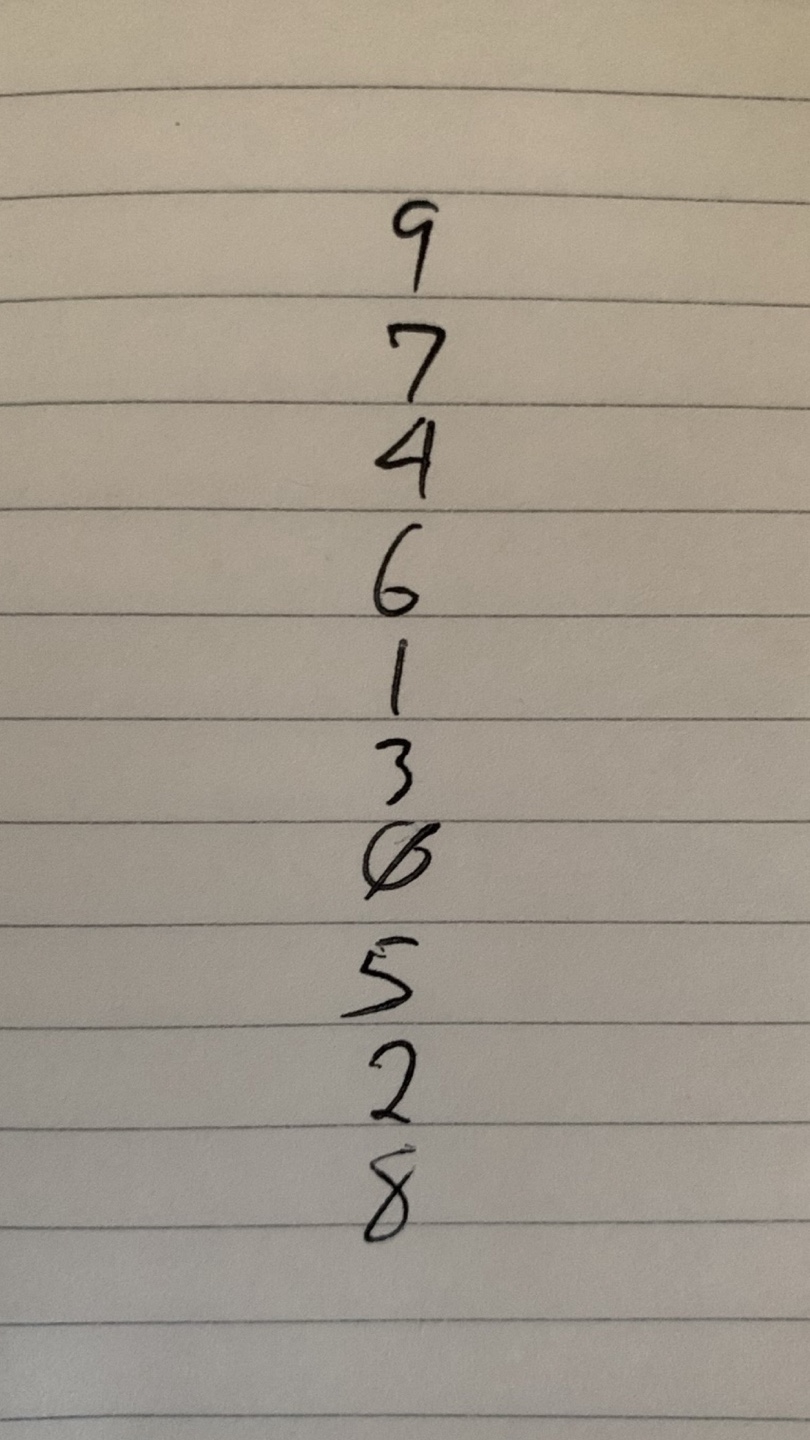 9
7
4
6
1
3
0
5
2
8